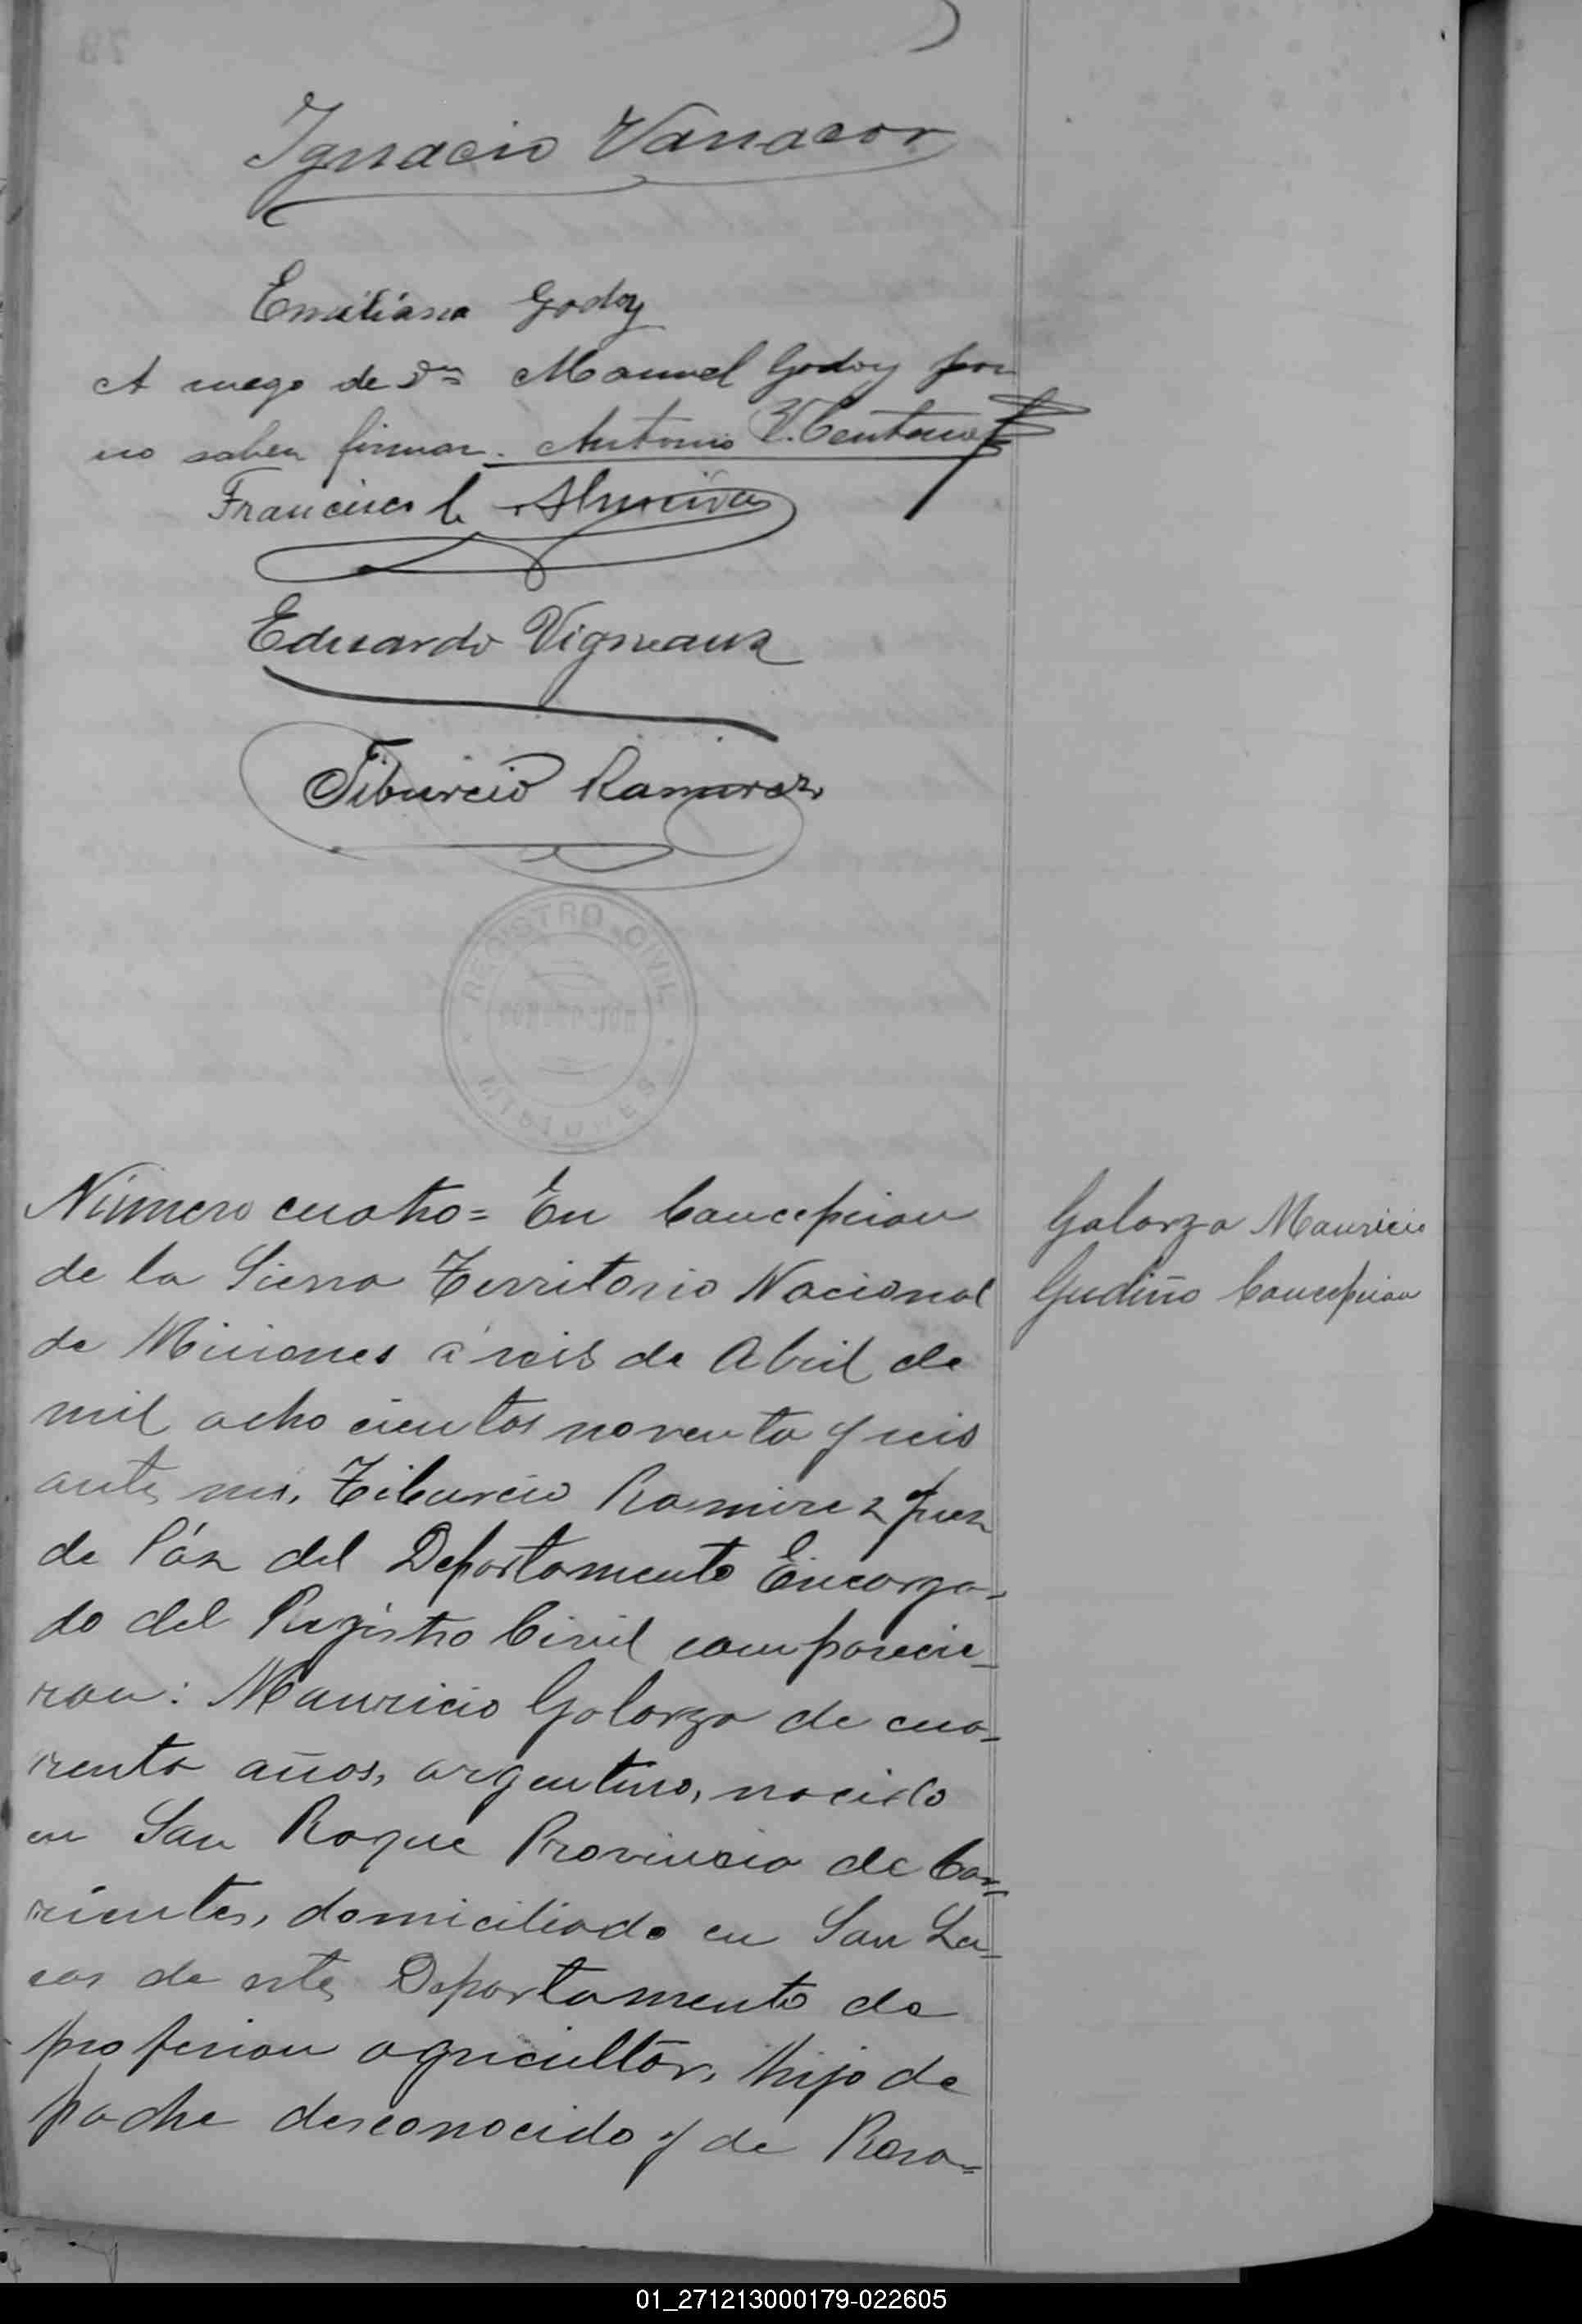 Ignacio Vanacor
Emiliana Godoy
A ruego de Dn Manuel Godoy por
no saber firmar. Antonio V. Centeno
Francisco C. Almeida
Eduardo Vigneaux
Tiburcio Ramirez
REGISTRO CIVIL
CONCEPCION
MISIONES
Número cuatro = En Concepcion
de la Sierra Territorio Nacional
de Miciones á seis de Abril de
mil ocho cientos noventa y seis
ante mi, Tiburcio Ramirez Juez
de Páz del Departamento Encarga-
do del Registro Civil comparecie-
ron: Mauricio Galarza de cua-
renta años, argentino, nacido
en San Roque Provincia de Cor=
rientes, domiciliado en San Lu=
cas de este Departamento de
profesion agricultor, hijo de
padre desconocido y de Rosa=
Galarza Mauricio
Gudiño Concepcion
01_271213000179-022605